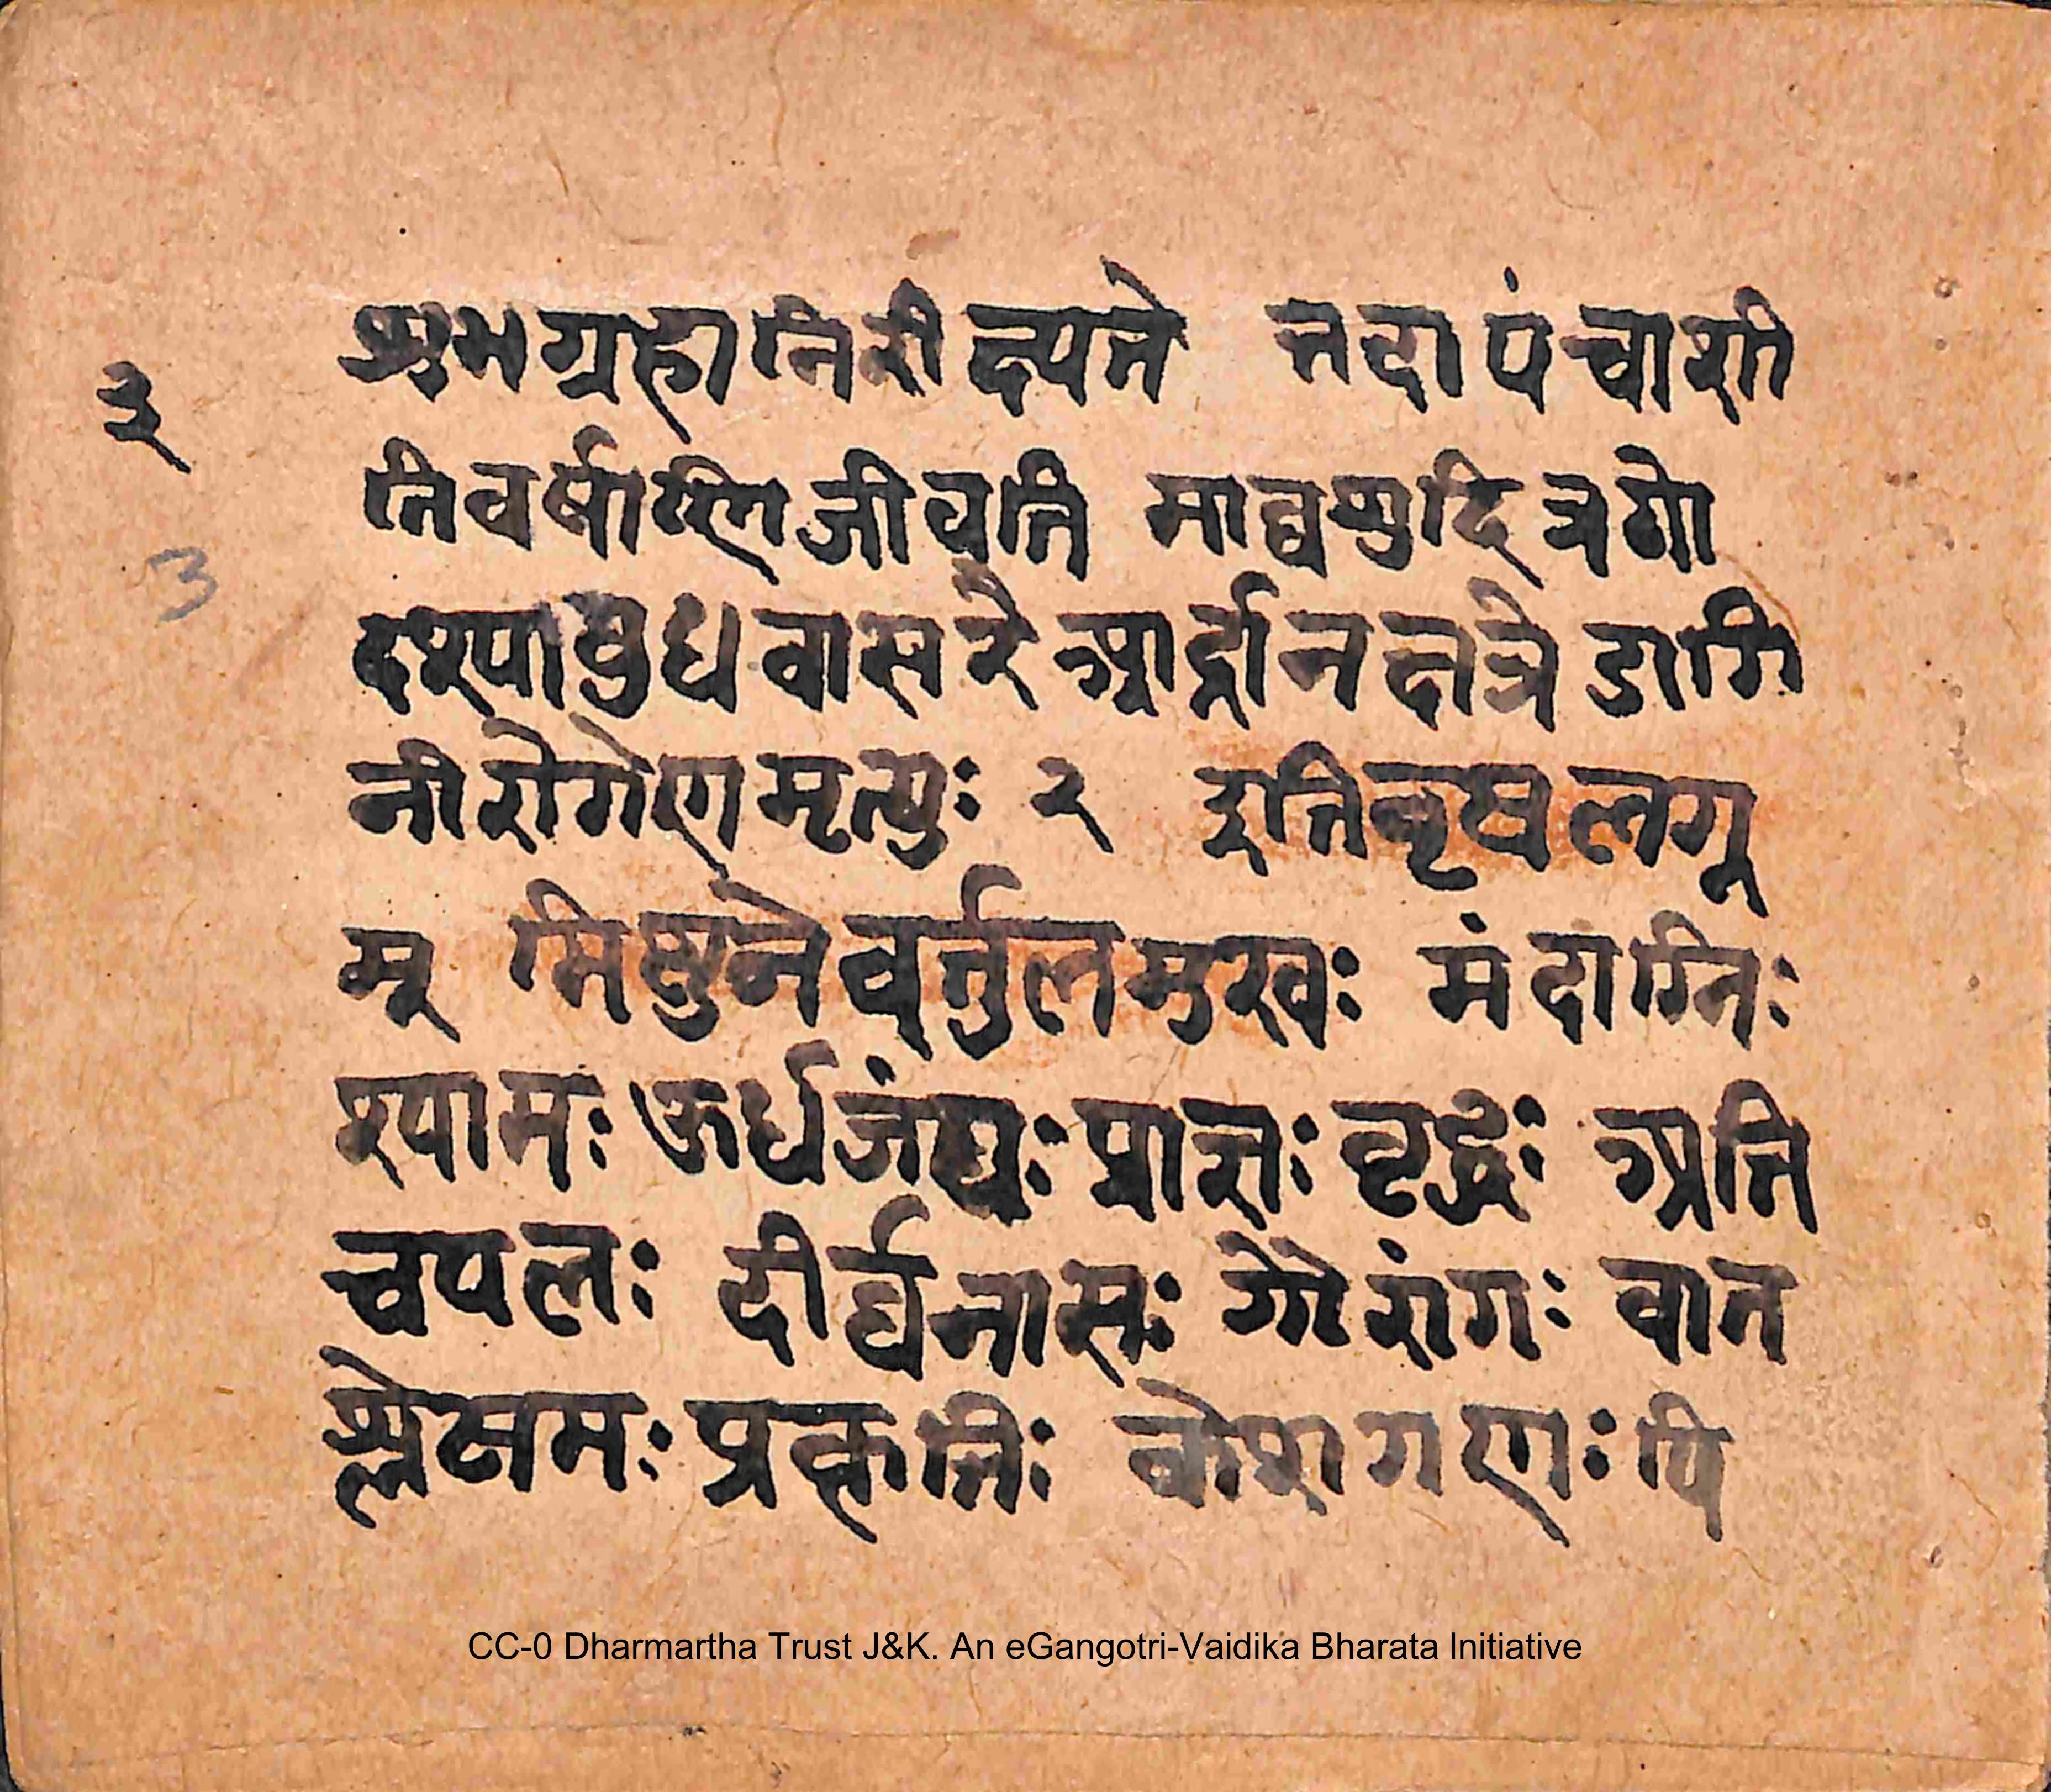 शुभग्रहानिरीक्ष्यते तदा पंचाशी
३
तिवर्षाणि जीवति माघशुदि त्रयो
3
दश्यां बुधवासरे आर्द्रानक्षत्रे डागि
नीरोगेण मृत्युः २ इति वृष लग्न
म् मिथुने वर्तुलमुखः मंदाग्निः
श्यामः ऊर्धजंघः प्राज्ञः वृद्धः अति
चपलः दीर्घनासः गौरांगः वात
श्लेक्षमः प्रकृतिः केशगणः पि
CC-0 Dharmartha Trust J&K. An eGangotri-Vaidika Bharata Initiative